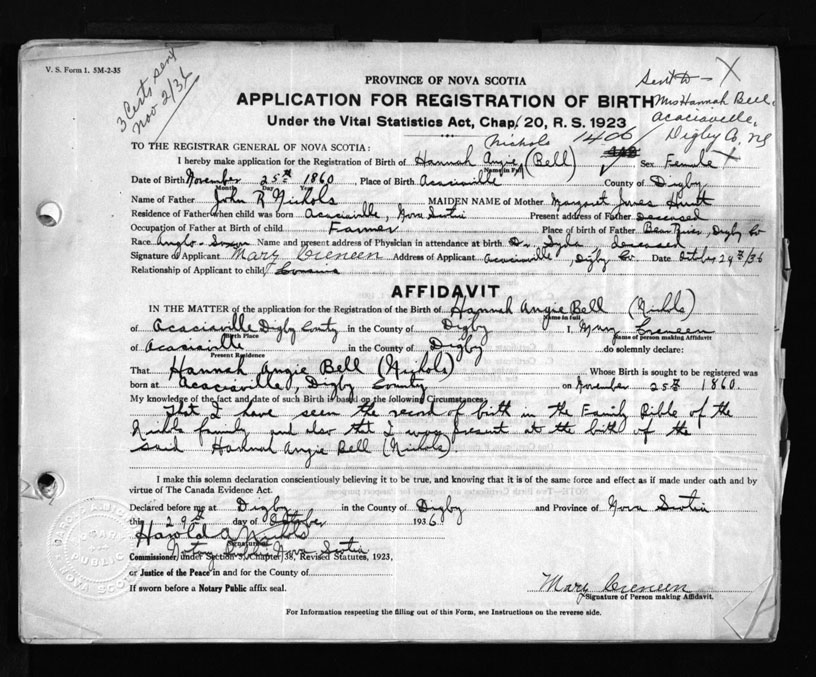 V. S. Form 1. 5M-2-35
3 Certs sent
Nov 2/36
PROVINCE OF NOVA SCOTIA
Sent to - X
APPLICATION FOR REGISTRATION OF BIRTH
Mrs Hannah Bell,
Under the Vital Statistics Act, Chap. 20, R. S. 1923
Acaciaville,
Digby Co. NS
Nichols 1406
TO THE REGISTRAR GENERAL OF NOVA SCOTIA:
I hereby make application for the Registration of Birth of Hannah Angie (Bell) Sex Female X
Name in Full
Date of Birth November 25th 1860, Place of Birth Acaciaville County of Digby
Month Day Year
Name of Father John R Nichols MAIDEN NAME of Mother Margaret Jones Hunt
Residence of Father when child was born Acaciaville, Nova Scotia Present address of Father Deceased
Occupation of Father at Birth of child Farmer Place of birth of Father Bear River, Digby Co
Race Anglo-Saxon Name and present address of Physician in attendance at birth Dr. deceased
Signature of Applicant Mary Address of Applicant Acaciaville, Digby Co. Date October 29th/36
Relationship of Applicant to child Cousins
AFFIDAVIT
IN THE MATTER of the application for the Registration of the Birth of Hannah Angie Bell (Nichols)
Name in full
of Acaciaville Digby County in the County of Digby I, Mary
Birth Place Name of person making Affidavit
of Acaciaville in the County of Digby do solemnly declare:
Present Residence
That Hannah Angie Bell (Nichols) Whose Birth is sought to be registered was
born at Acaciaville, Digby County on November 25th 1860.
My knowledge of the fact and date of such Birth is based on the following Circumstances:
That I have seen the record of birth in the Family Bible of the
Nichols family and also that I was present at the birth of the
said Hannah Angie Bell (Nichols).
I make this solemn declaration conscientiously believing it to be true, and knowing that it is of the same force and effect as if made under oath and by
virtue of The Canada Evidence Act.
Declared before me at Digby in the County of Digby and Province of Nova Scotia
this 29th day of October 1936
Harold A Nichols
Signature of
Notary Public Nova Scotia
Commissioner, under Section 3, Chapter 38, Revised Statutes, 1923,
or Justice of the Peace in and for the County of
If sworn before a Notary Public affix seal.
Mary
Signature of Person making Affidavit.
For Information respecting the filling out of this Form, see Instructions on the reverse side.